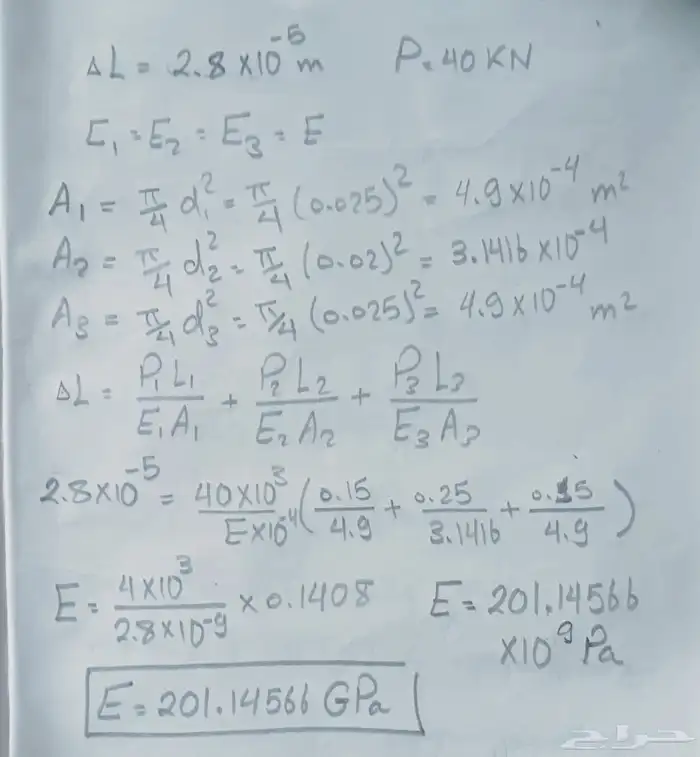 ΔL = 2.8 ×10^-5 m P. 40 KN
E₁ = E₂ = E₃ = E
A₁ = π/4 d₁² = π/4 (0.025)² = 4.9×10^-4 m²
A₂ = π/4 d₂² = π/4 (0.02)² = 3.1416 ×10^-4
A₃ = π/4 d₃² = π/4 (0.025)² = 4.9×10^-4 m²
ΔL = P₁L₁/E₁A₁ + P₂L₂/E₂A₂ + P₃L₃/E₃A₃
2.8×10^-5 = 40×10³/E×10^-4 (0.15/4.9 + 0.25/3.1416 + 0.15/4.9)
E = 4×10³/2.8×10^-9 × 0.1408 E = 201.14566
×10⁹ Pa
E = 201.14566 GPa
حراج